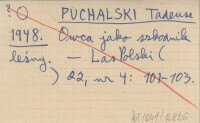 ? O PUCHALSKI Tadeusz
1948. Owca jako szkodnik
leśny. — Las Polski (
) 22, nr 4: 101-103.